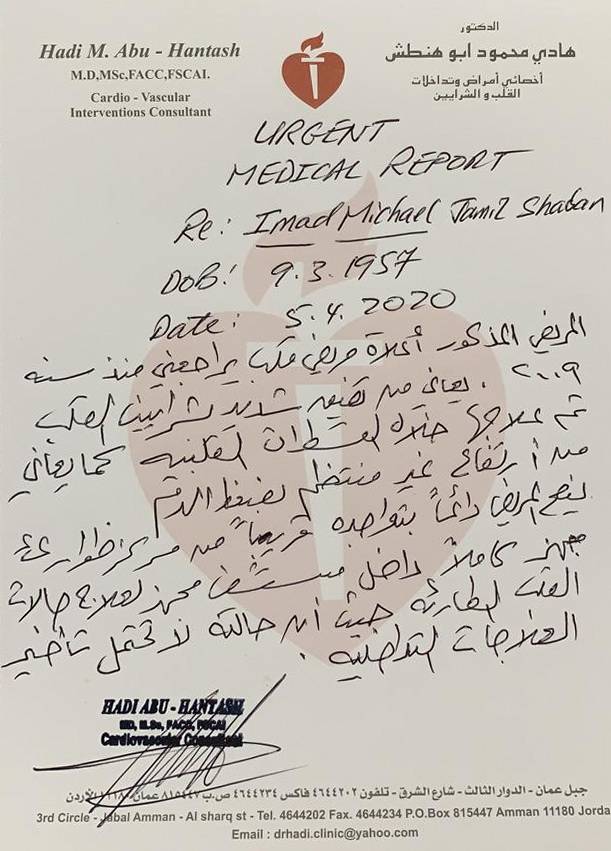 Hadi M. Abu - Hantash
M.D,MSc,FACC,FSCAI.
Cardio - Vascular
Interventions Consultant
الدكتور
هادي محمود ابو هنطش
أخصائي أمراض وتداخلات
القلب والشرايين
URGENT
MEDICAL REPORT
Re: Imad Michael Jamil Shaban
DOB: 9.3.1957
Date: 5.4.2020
المريض المذكور أعلاه مريض قلب يراجعني منذ سنه
٢٠٠٩ . يعاني من تضيق شديد بشرايين القلب
تم علاجها خلال القسطرات القلبيه كما يعاني
من ارتفاع غير منتظم بضغط الدم
ينصح المريض دائماً بتواجده قريباً من مركز طوارئ
مجهز كاملاً داخل مستشفى مجهز لعلاج حالات
القلب الطارئه حيث أن حالته لا تحتمل تأخير
العلاجات التداخليه .
HADI ABU - HANTASH
MD, M.Sc, FACC, FSCAI
Cardiovascular Consultant
جبل عمان - الدوار الثالث - شارع الشرق - تلفون ٤٦٤٤٢٠٢ فاكس ٤٦٤٤٢٣٤ ص.ب ٨١٥٤٤٧ عمان ١١١٨٠ الأردن
3rd Circle - Jabal Amman - Al sharq st - Tel. 4644202 Fax. 4644234 P.O.Box 815447 Amman 11180 Jorda
Email : drhadi.clinic@yahoo.com